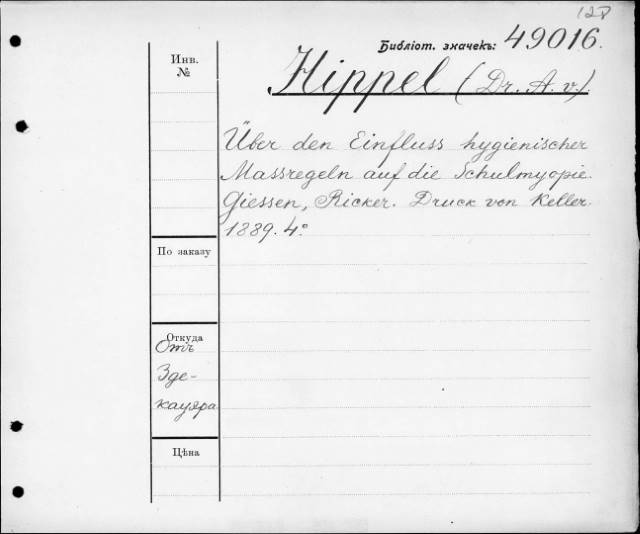 Библіот. значекъ: 49016.
Инв.
№
Hippel (Dr. A. v.).
Über den Einfluss hygienischer
Massregeln auf die Schulmyopie.
Giessen, Ricker. Druck von Keller.
1889. 4°
По заказу
Откуда
Отъ
Зде-
кауера
Цѣна